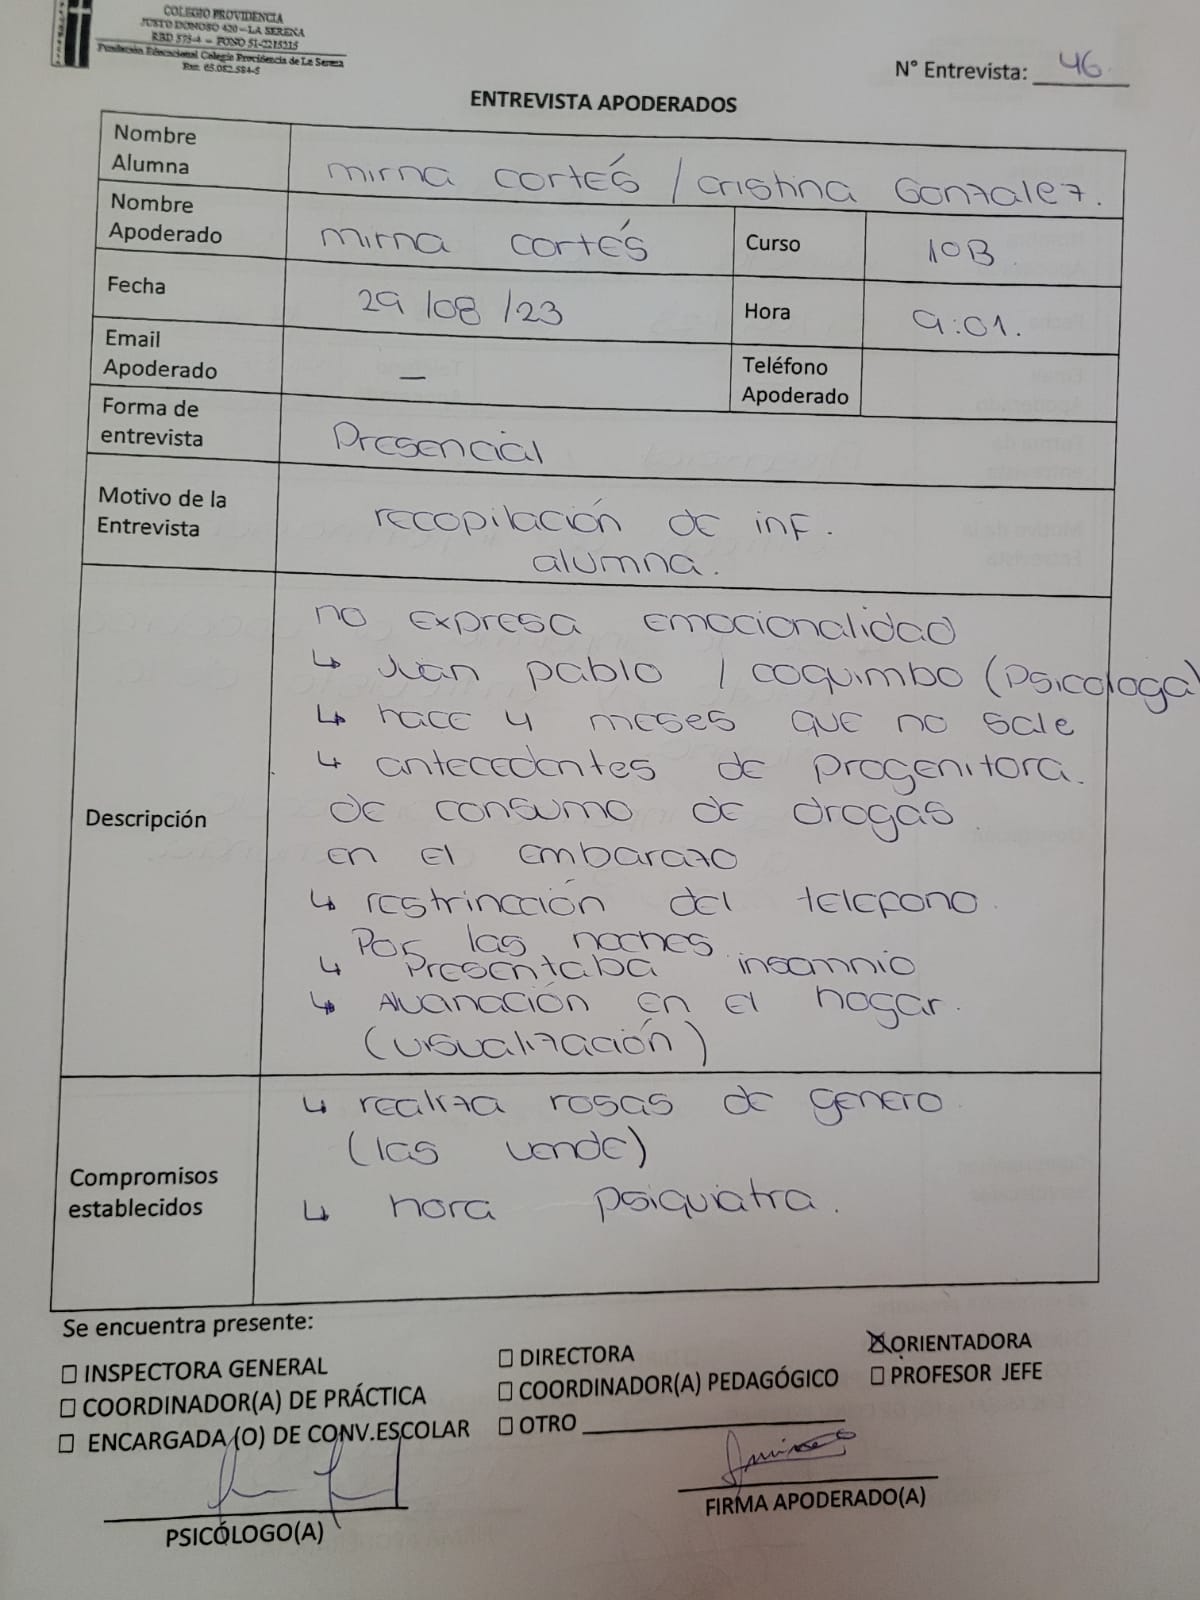 COLEGIO PROVIDENCIA
JUSTO DONOSO 420 – LA SERENA
RBD 575-4 – FONO 51-2215215
Fundación Educacional Colegio Providencia de La Serena
Rut: 65.082.584-5
N° Entrevista: 46
ENTREVISTA APODERADOS
Nombre Alumna
mirna cortés / cristina Gonzalez.
Nombre Apoderado
mirna cortés
Curso
10B
Fecha
29/08/23
Hora
9:01.
Email Apoderado
—
Teléfono Apoderado
Forma de entrevista
Presencial
Motivo de la Entrevista
recopilación de inf.
alumna.
Descripción
no expresa emocionalidad
↳ Juan pablo / coquimbo (psicologa)
↳ hace 4 meses que no sale
↳ antecedentes de progenitora.
de consumo de drogas
en el embarazo
↳ restrincción del telefono.
Por las noches
↳ Presentaba insomnio
↳ Aluanación en el hogar.
(visualización)
Compromisos establecidos
↳ realiza rosas de genero
(las vende)
↳ hora psiquiatra.
Se encuentra presente:
☐ INSPECTORA GENERAL
☐ DIRECTORA
☒ ORIENTADORA
☐ COORDINADOR(A) DE PRÁCTICA
☐ COORDINADOR(A) PEDAGÓGICO
☐ PROFESOR JEFE
☐ ENCARGADA (O) DE CONV.ESCOLAR
☐ OTRO
PSICÓLOGO(A)
FIRMA APODERADO(A)